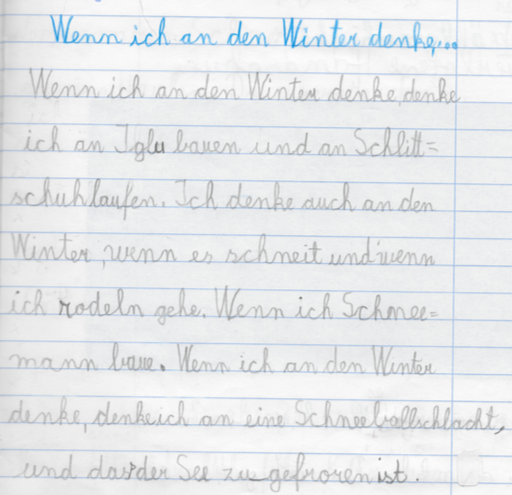 Wenn ich an den Winter denke,...
Wenn ich an den Winter denke, denke
ich an Iglu bauen und an Schlitt=
schuhlaufen. Ich denke auch an den
Winter, wenn es schneit und wenn
ich rodeln gehe. Wenn ich Schnee=
mann baue. Wenn ich an den Winter
denke, denke ich an eine Schneeballschlacht,
und das der See zu gefroren ist.